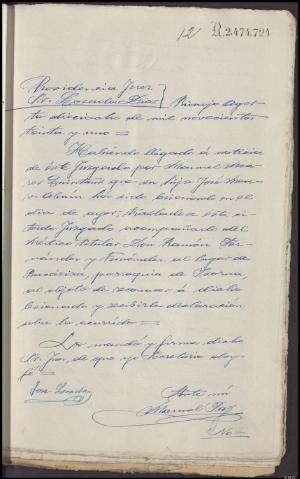 12 R.2.474.724
Providencia Juez
Sr. Losada Diaz Rianjo Agos-
to dieciocho de mil novecientos
treinta y uno =
Habiendo llegado a noticia
de este Juzgado por Manuel
que su hijo José
ha sido lesionado en el
dia de ayer, trasladese este
Juzgado acompañado del
Médico titular Don Ramón Fer-
nández y al lugar de
parroquia de
al objeto de reconocer a dicho
lesionado y recibirle declaración
sobre lo ocurrido =
Lo manda y firma dicho
Sr. Juez, de que yo Secretario doy
fé =
Jose Losada
Ante mi
Manuel